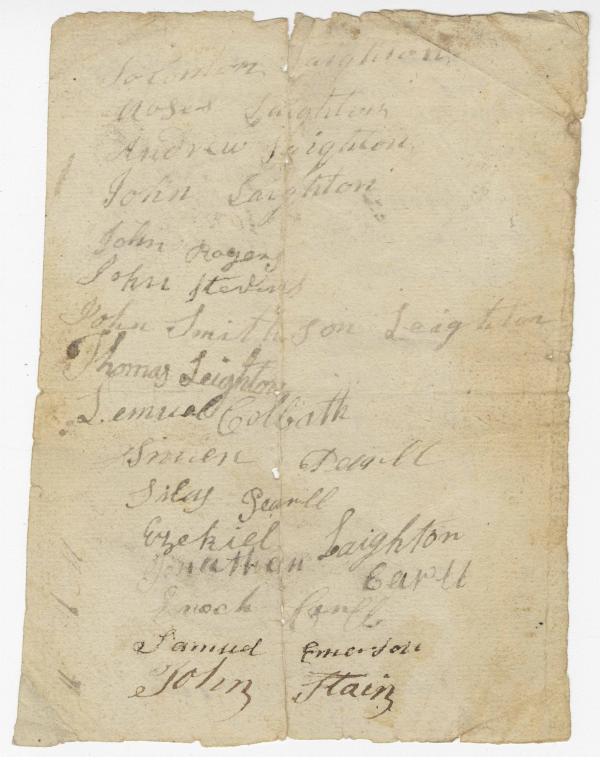 Solomon Laighton
Moses Laighton
Andrew Laighton
John Laighton
John Rogers
John Stevens
John Smithson Leighton
Thomas Leighton
Lemuel Colbath
Simien Dearll
Silas Pearll
Ezekiel Laighton
Jonathan Earll
Enoch
Samuel Emerson
John Stain